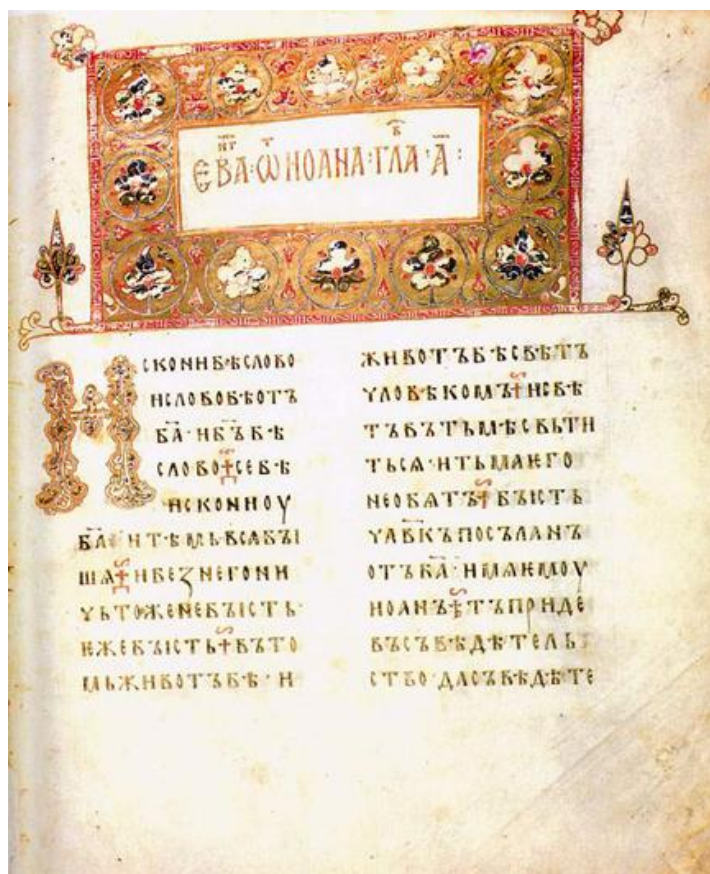 ЄВАНГ҃ · Ѿ ИОАНА · ГЛАВ҃ · А҃ :
ИСКОНИ БѢ СЛОВО
И СЛОВО БѢ ОТЪ
Б҃А · И Б҃Ъ БѢ
СЛОВО · СЕ БѢ
ИСКОНИ ОУ
Б҃А · И ТѢМЬ ВСѦ БЪІ
ШѦ · И БЕЗ НЕГО НИ
ЧЬТОЖЕ НЕ БЪІСТЬ ·
ЕЖЕ БЪІСТЬ · ВЪ ТО
МЬ ЖИВОТЪ БѢ · И
ЖИВОТЪ БѢ СВѢТЪ
ЧЛОВѢКОМЪ · И СВѢ
ТЪ ВЪ ТЬМѢ СВЬТИ
ТЬСѦ · И ТЬМА ѤГО
НЕ ОБѦТЪ · БЪІСТЬ
ЧЛ҃ВКЪ ПОСЪЛАНЪ
ОТЪ Б҃А · ИМѦ ѤМОУ
ИОАНЪ · ТЪ ПРИДЕ
ВЪ СЪВѢДѢТЕЛЬ
СТВО · ДА СЪВѢДѢТЕ